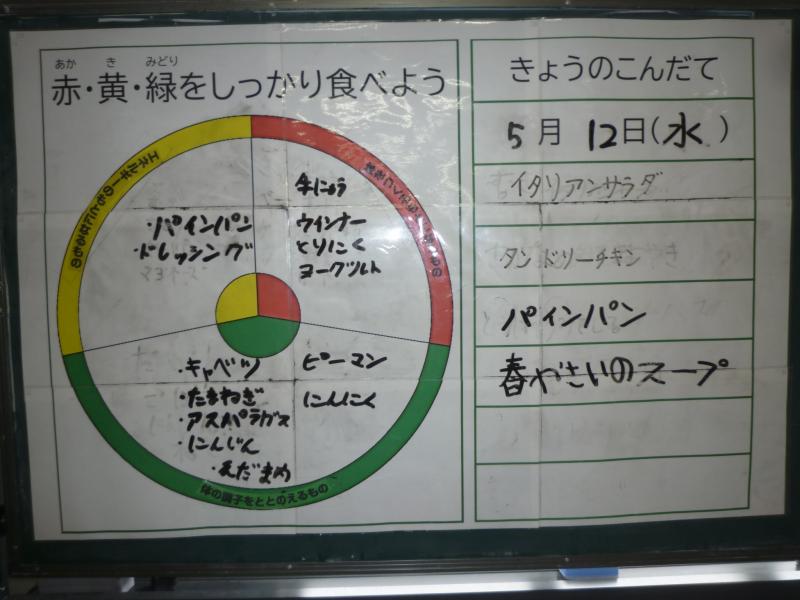 あか き みどり
赤・黄・緑をしっかり食べよう
エネルギーのもとになるもの
体をつくるもの
牛にゅう
ウィンナー
とりにく
ヨーグルト
・パインパン
・ドレッシング
マヨネーズ
・キャベツ
・たまねぎ
・アスパラガス
・にんじん
・えだまめ
ピーマン
にんにく
体の調子をととのえるもの
きょうのこんだて
5月 12日(水)
イタリアンサラダ
タンドリーチキン
パインパン
春やさいのスープ